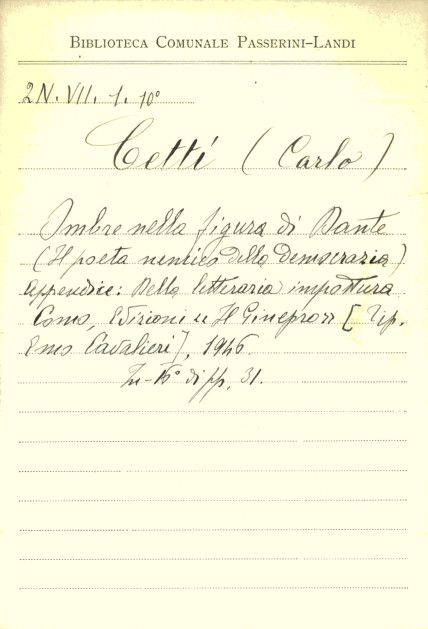 BIBLIOTECA COMUNALE PASSERINI-LANDI
2N. VII. 1. 10°
Cetti (Carlo)
Ombre nella figura di Dante
(Il poeta nemico della democrazia)
Appendice: Della letteraria impostura
Como, Edizioni "Il Ginepro" [Tip.
Emo Cavalieri], 1946.
In-16° di pp. 31.